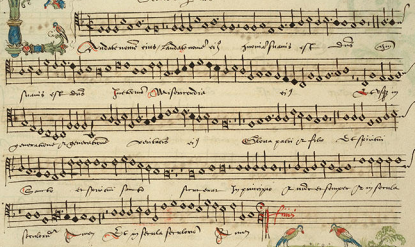 Laudate nomen eius laudate nomen eij quoniam suavis est dns
suavis est dns In eternum Misericordia eij Et usq in
generatione & generationem veritas eij Gloria patri & filio Et spiritui
Sancto et spiritui sancto sicut erat In principio & nunc et semper & in secula
seculorum Amen Et in secula seculorum Amen